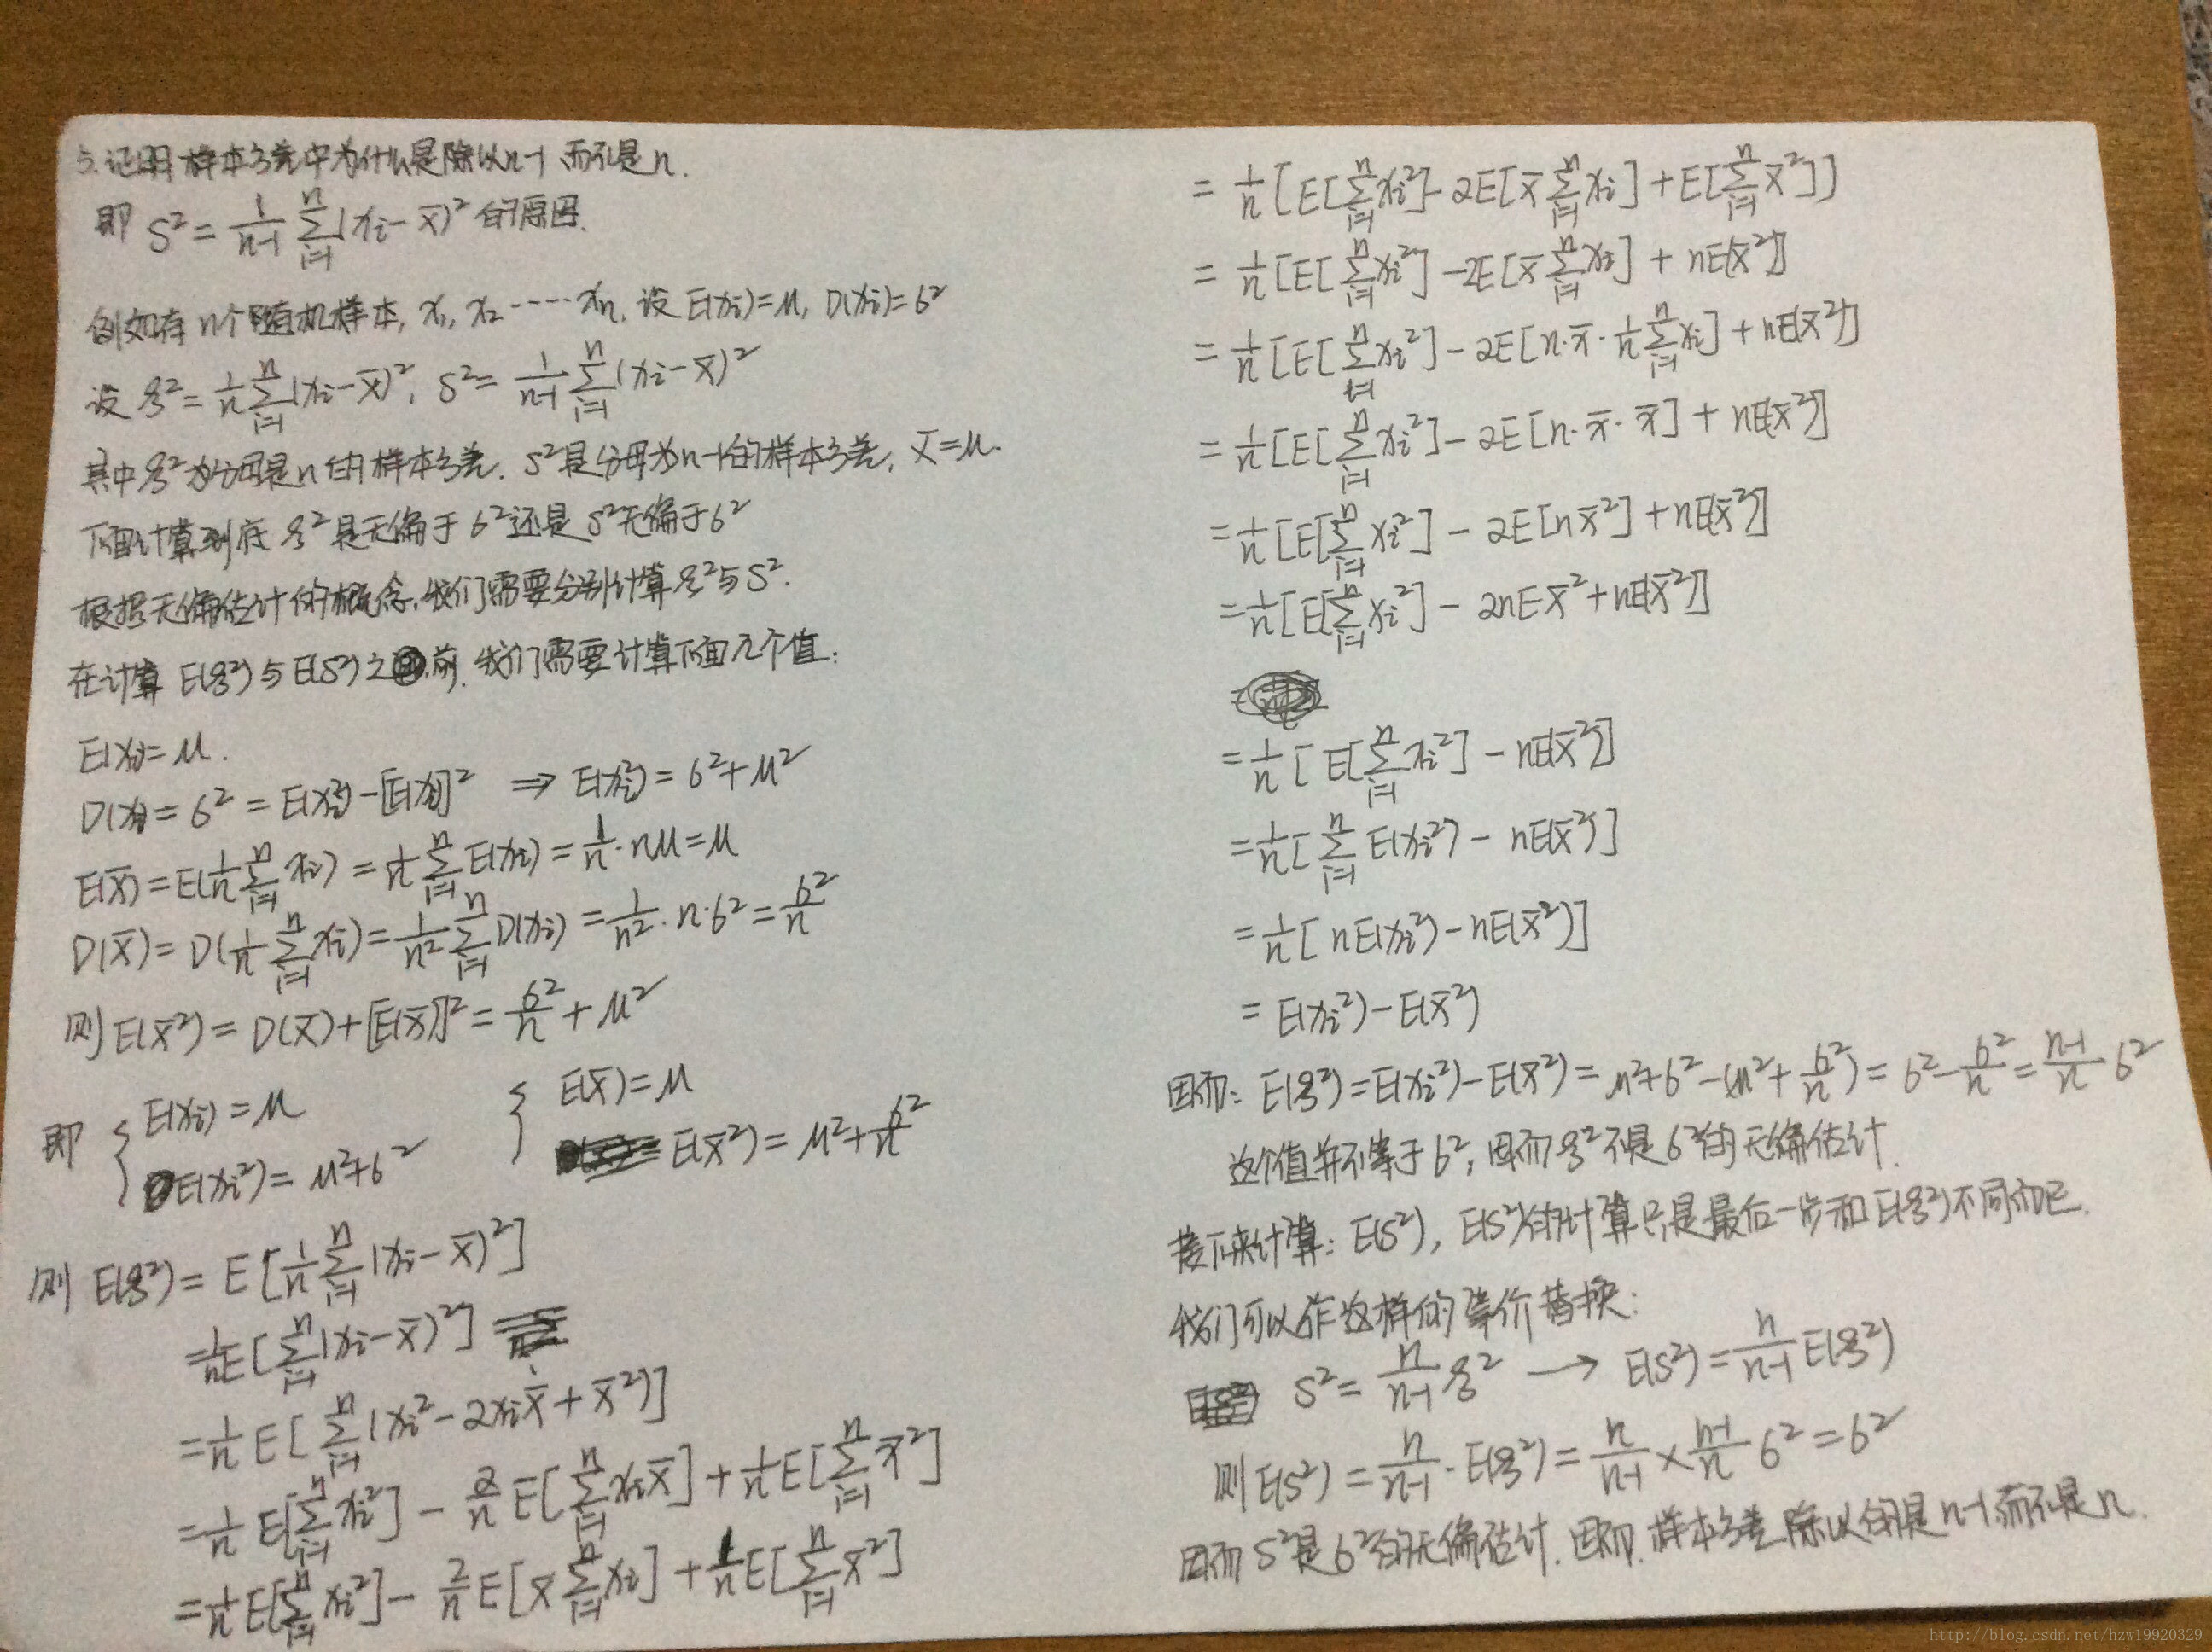 5.证明样本方差中为什么是除以n-1而不是n.
即 S² = \frac{1}{n-1} \sum_{i=1}^{n} (xi - x̄)² 的原因.
例如有n个随机样本, x₁, x₂ ····· xn, 设 E(xi)=μ, D(xi)=6²
设 ξ² = \frac{1}{n} \sum_{i=1}^{n} (xi - x̄)², S² = \frac{1}{n-1} \sum_{i=1}^{n} (xi - x̄)²
其中 ξ² 为分母是n的样本方差. S²是分母为n-1的样本方差, x̄=μ.
下面计算到底 ξ² 是无偏于6²还是S²无偏于6²
根据无偏估计的概念,我们需要分别计算 ξ²与S².
在计算 E(ξ²)与E(S²)之前, 我们需要计算下面几个值:
E(xi)=μ.
D(xi)=6² = E(xi²)-[E(xi)]² ⇒ E(xi²)=6²+μ²
E(x̄)=E(\frac{1}{n} \sum_{i=1}^{n} xi) = \frac{1}{n} \sum_{i=1}^{n} E(xi) = \frac{1}{n}·nμ=μ
D(x̄)=D(\frac{1}{n} \sum_{i=1}^{n} xi) = \frac{1}{n²} \sum_{i=1}^{n} D(xi) = \frac{1}{n²}·n·6² = \frac{6²}{n}
则 E(x̄²) = D(x̄)+[E(x̄)]² = \frac{6²}{n} + μ²
即 { E(xi)=μ { E(x̄)=μ
E(xi²)=μ²+6² E(x̄²)=μ²+\frac{6²}{n}
则 E(ξ²) = E[\frac{1}{n} \sum_{i=1}^{n} (xi - x̄)²]
= \frac{1}{n} E[\sum_{i=1}^{n} (xi - x̄)²]
= \frac{1}{n} E[\sum_{i=1}^{n} (xi² - 2xi x̄ + x̄²)]
= \frac{1}{n} E[\sum_{i=1}^{n} xi²] - \frac{2}{n} E[\sum_{i=1}^{n} xi x̄] + \frac{1}{n} E[\sum_{i=1}^{n} x̄²]
= \frac{1}{n} E[\sum_{i=1}^{n} xi²] - \frac{2}{n} E[x̄ \sum_{i=1}^{n} xi] + \frac{1}{n} E[\sum_{i=1}^{n} x̄²]
= \frac{1}{n} [E[\sum_{i=1}^{n} xi²] - 2E[x̄ \sum_{i=1}^{n} xi] + E[\sum_{i=1}^{n} x̄²]]
= \frac{1}{n} [E[\sum_{i=1}^{n} xi²] - 2E[x̄ \sum_{i=1}^{n} xi] + nE(x̄²)]
= \frac{1}{n} [E[\sum_{i=1}^{n} xi²] - 2E[n·x̄·\frac{1}{n} \sum_{i=1}^{n} xi] + nE(x̄²)]
= \frac{1}{n} [E[\sum_{i=1}^{n} xi²] - 2E[n·x̄·x̄] + nE(x̄²)]
= \frac{1}{n} [E[\sum_{i=1}^{n} xi²] - 2E[nx̄²] + nE(x̄²)]
= \frac{1}{n} [E[\sum_{i=1}^{n} xi²] - 2nEx̄² + nE(x̄²)]
= \frac{1}{n} [E[\sum_{i=1}^{n} xi²] - nE(x̄²)]
= \frac{1}{n} [\sum_{i=1}^{n} E(xi²) - nE(x̄²)]
= \frac{1}{n} [nE(xi²) - nE(x̄²)]
= E(xi²) - E(x̄²)
因而: E(ξ²) = E(xi²) - E(x̄²) = μ²+6² - (μ²+\frac{6²}{n}) = 6² - \frac{6²}{n} = \frac{n-1}{n} 6²
这个值并不等于6², 因而 ξ² 不是6²的无偏估计.
接下来计算: E(S²), E(S²)的计算只是最后一步和E(ξ²)不同而已.
我们可以作这样的等价替换:
S² = \frac{n}{n-1} ξ² → E(S²) = \frac{n}{n-1} E(ξ²)
则 E(S²) = \frac{n}{n-1}·E(ξ²) = \frac{n}{n-1} × \frac{n-1}{n} 6² = 6²
因而 S²是6²的无偏估计. 因而, 样本方差除以的是n-1而不是n.
http://blog.csdn.net/hzw19920329